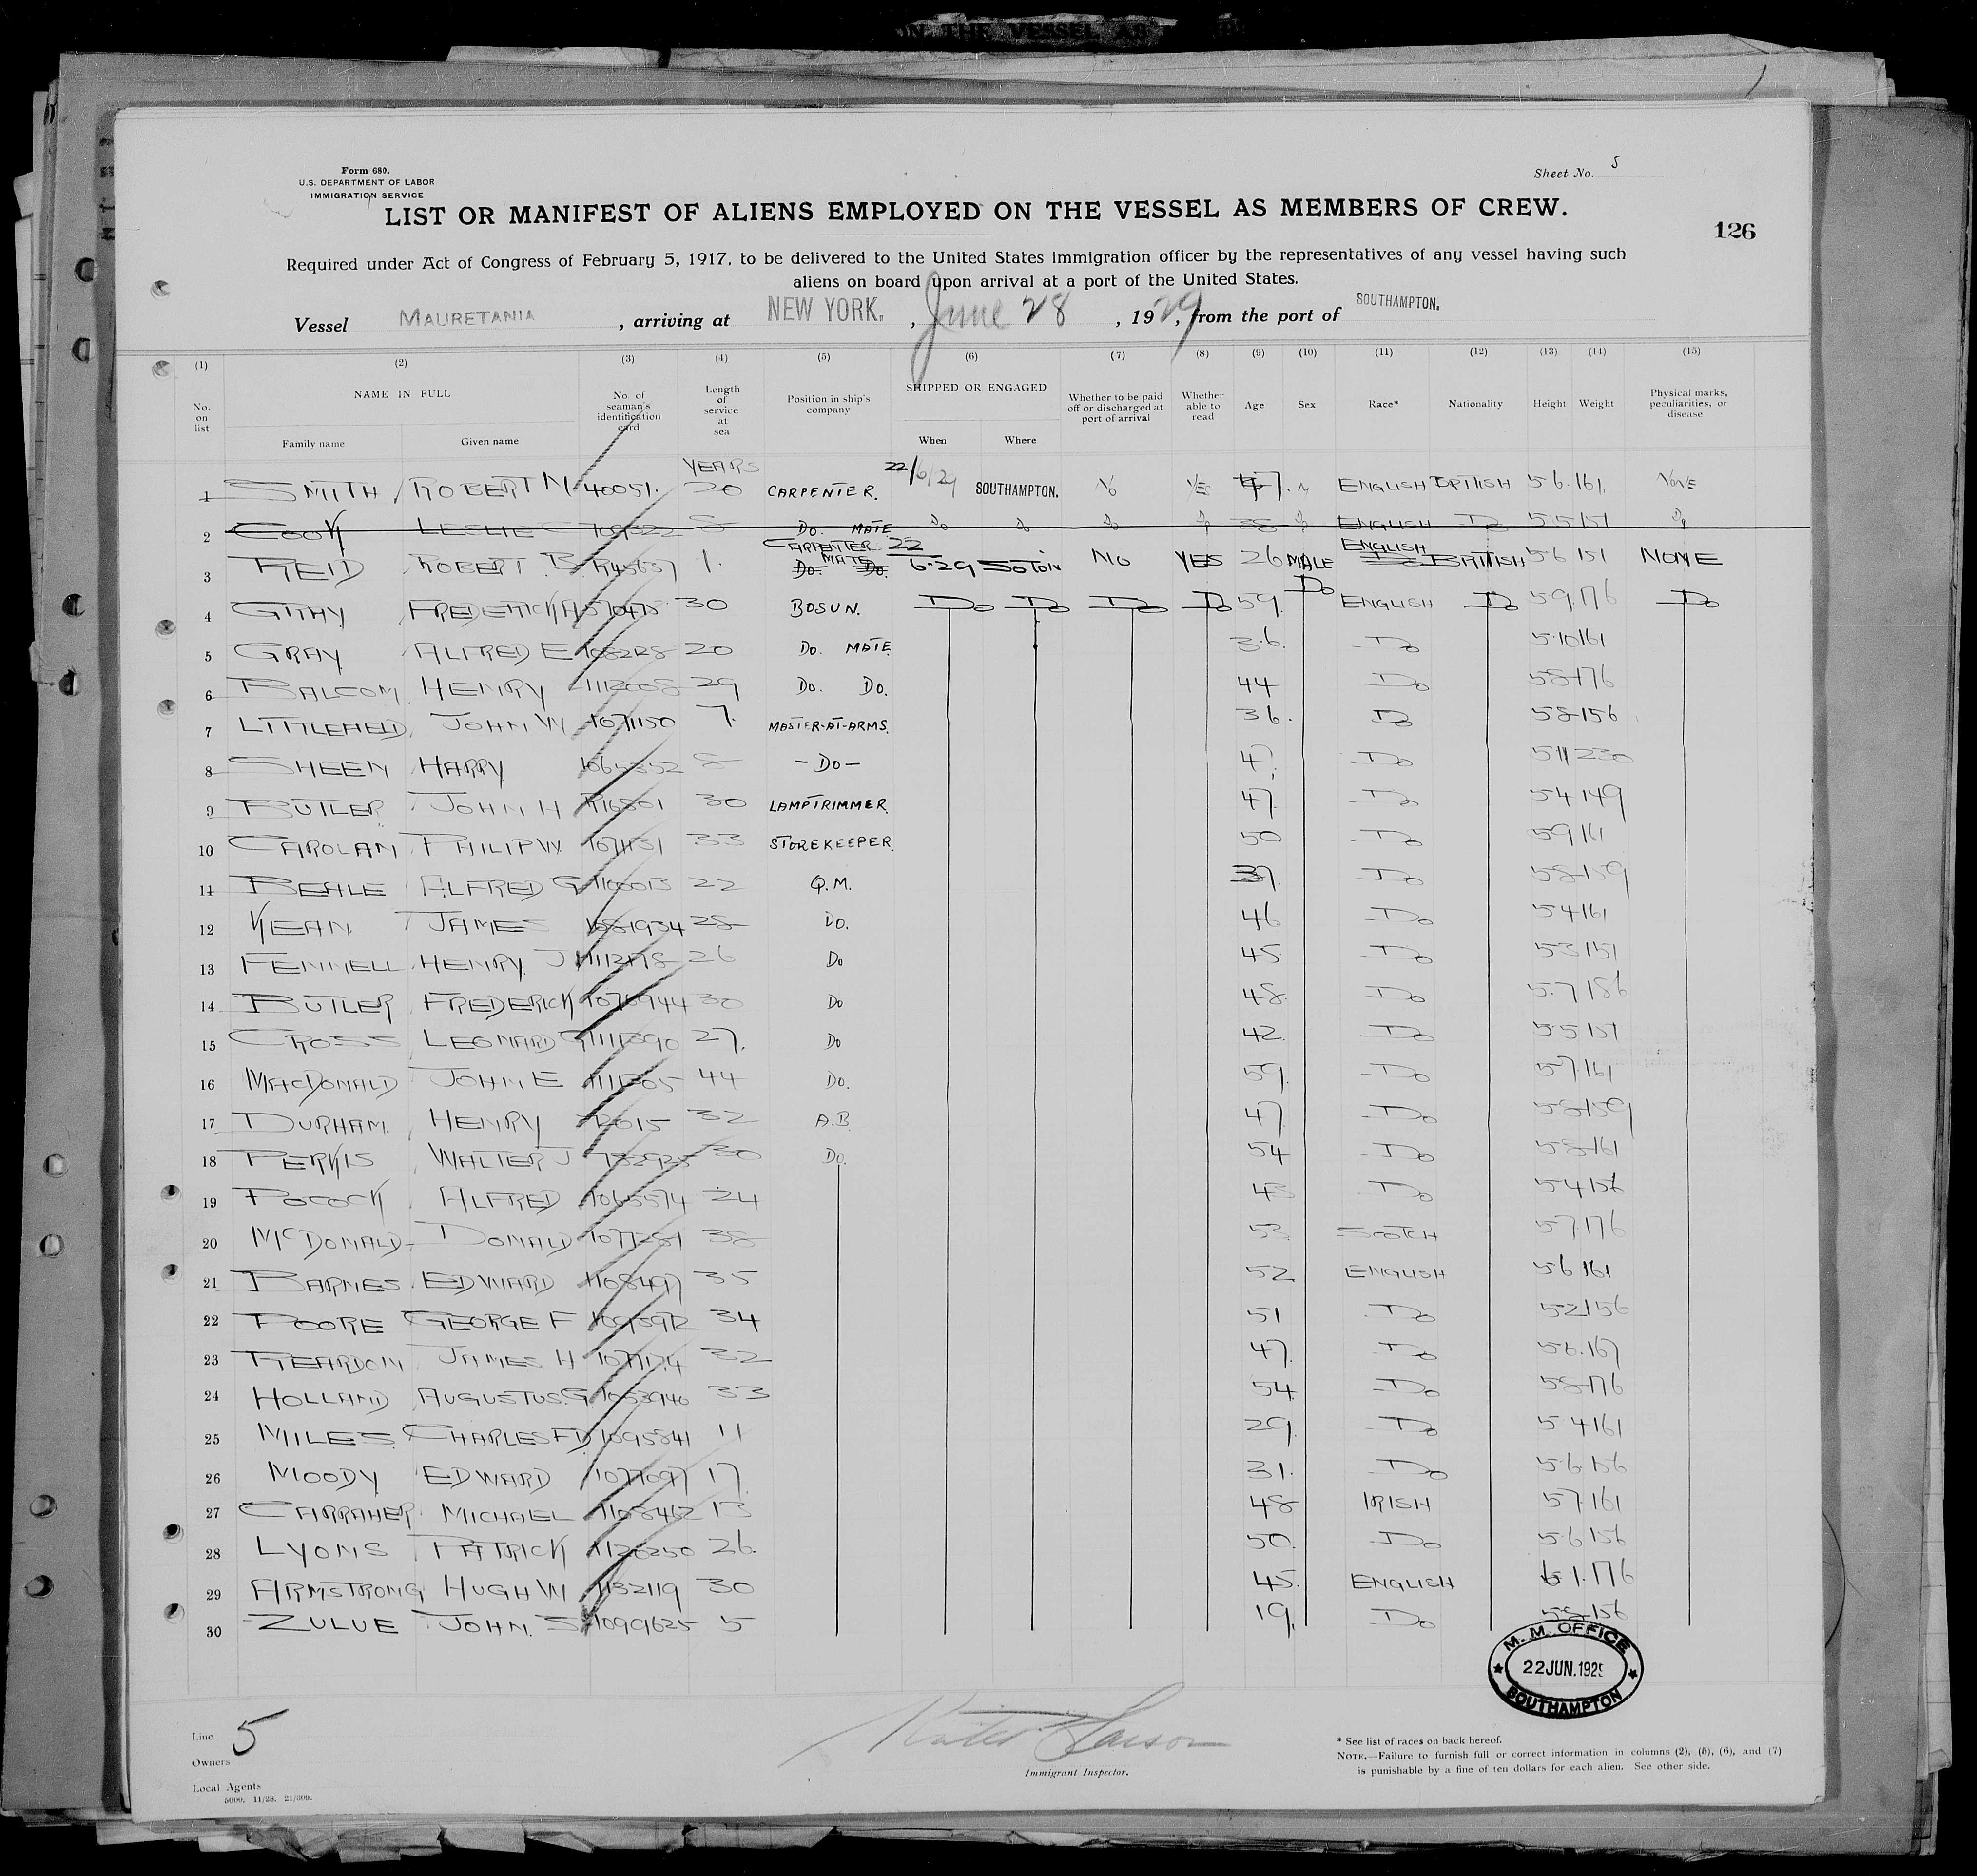 IN THE VESSEL AS
Form 680.
U.S. DEPARTMENT OF LABOR
IMMIGRATION SERVICE
Sheet No. 5
LIST OR MANIFEST OF ALIENS EMPLOYED ON THE VESSEL AS MEMBERS OF CREW.
126
Required under Act of Congress of February 5, 1917, to be delivered to the United States immigration officer by the representatives of any vessel having such
aliens on board upon arrival at a port of the United States.
Vessel MAURETANIA, arriving at NEW YORK., June 28, 1929, from the port of SOUTHAMPTON.
(1) (2) (3) (4) (5) (6) (7) (8) (9) (10) (11) (12) (13) (14) (15)
No. on list NAME IN FULL Family name Given name No. of seaman's identification card Length of service at sea Position in ship's company SHIPPED OR ENGAGED When Where Whether to be paid off or discharged at port of arrival Whether able to read Age Sex Race* Nationality Height Weight Physical marks, peculiarities, or disease
YEARS
1 SMITH ROBERT M 40051. 20 CARPENTER. 22/6/29 SOUTHAMPTON. No YES 47. M ENGLISH BRITISH 5 6. 161. NONE
2 COOK LESLIE 8 Do. MATE Do Do Do 38 ENGLISH Do 5 5 151
3 REID ROBERT. B. R45637 1. CARPENTER MATE Do. Do. 22 6.29 SOTON NO YES 26 MALE ENGLISH BRITISH 5 6 151 NONE
4 GRAY FREDERICK A 570475 30 BOSUN. Do Do Do Do 59. Do ENGLISH Do 5 9. 176 Do
5 GRAY ALFRED E 1083228 20 Do. MATE 36. Do 5 10 161
6 BALCOM HENRY 1112008 29 Do. Do. 44 Do 5 8 176
7 LITTLEFIELD JOHN W 1071150 7. MASTER-AT-ARMS. 36. Do 5 8 156
8 SHEEN HARRY 1065352 8 - Do - 47. Do 5 11 230
9 BUTLER JOHN H R16801 30 LAMPTRIMMER 47. Do 5 4 149
10 CAROLAN PHILIP W 1071131 33 STOREKEEPER. 50 Do 5 9 161
11 BEALE ALFRED G 1100013 22 Q.M. 39. Do 5 8 159
12 KEAN JAMES 1081934 28 Do. 46 Do 5 4 161
13 FENNELL HENRY J 26 Do 45 Do 5 3 151
14 BUTLER FREDERICK 1070944 30 Do 48. Do 5.7 186
15 CROSS LEONARD G 1111390 27. Do 42. Do 5 5 151
16 MACDONALD JOHN E 1111305 44 Do. 59. Do 5 7. 161
17 DURHAM. HENRY 32 A.B. 47 Do 5 8 159
18 PERKIS WALTER J 782925 30 Do. 54 Do 5 8 161
19 POCOCK ALFRED 1065574 24 43 Do 5 4 156
20 McDONALD DONALD 1077281 38 53 SCOTCH 5 7 176
21 BARNES EDWARD 1108497 35 52 ENGLISH 5 6 161
22 POORE GEORGE F 1095972 34 51 Do 5 2 156
23 REARDON JAMES H 1077174 32 47. Do 5 6. 167
24 HOLLAND AUGUSTUS. G 1053946 33 54 Do 5 8 176
25 MILES CHARLES F D 1095841 11 29. Do 5 4 161
26 MOODY EDWARD 1077097 17 31. Do 5 6 156
27 CARRAHER MICHAEL 1108462 13 48 IRISH 5 7. 161
28 LYONS PATRICK 1120250 26. 50. Do 5 6 156
29 ARMSTRONG HUGH W 1132119 30 45. ENGLISH 6 1. 176
30 ZULUE JOHN. S 1099625 5 19. Do 5 8 156
M. M. OFFICE
22 JUN. 1929
SOUTHAMPTON
Line 5
Owners
Local Agents
5000. 11/28. 21/309.
Larson
Immigrant Inspector.
* See list of races on back hereof.
NOTE.—Failure to furnish full or correct information in columns (2), (5), (6), and (7)
is punishable by a fine of ten dollars for each alien. See other side.